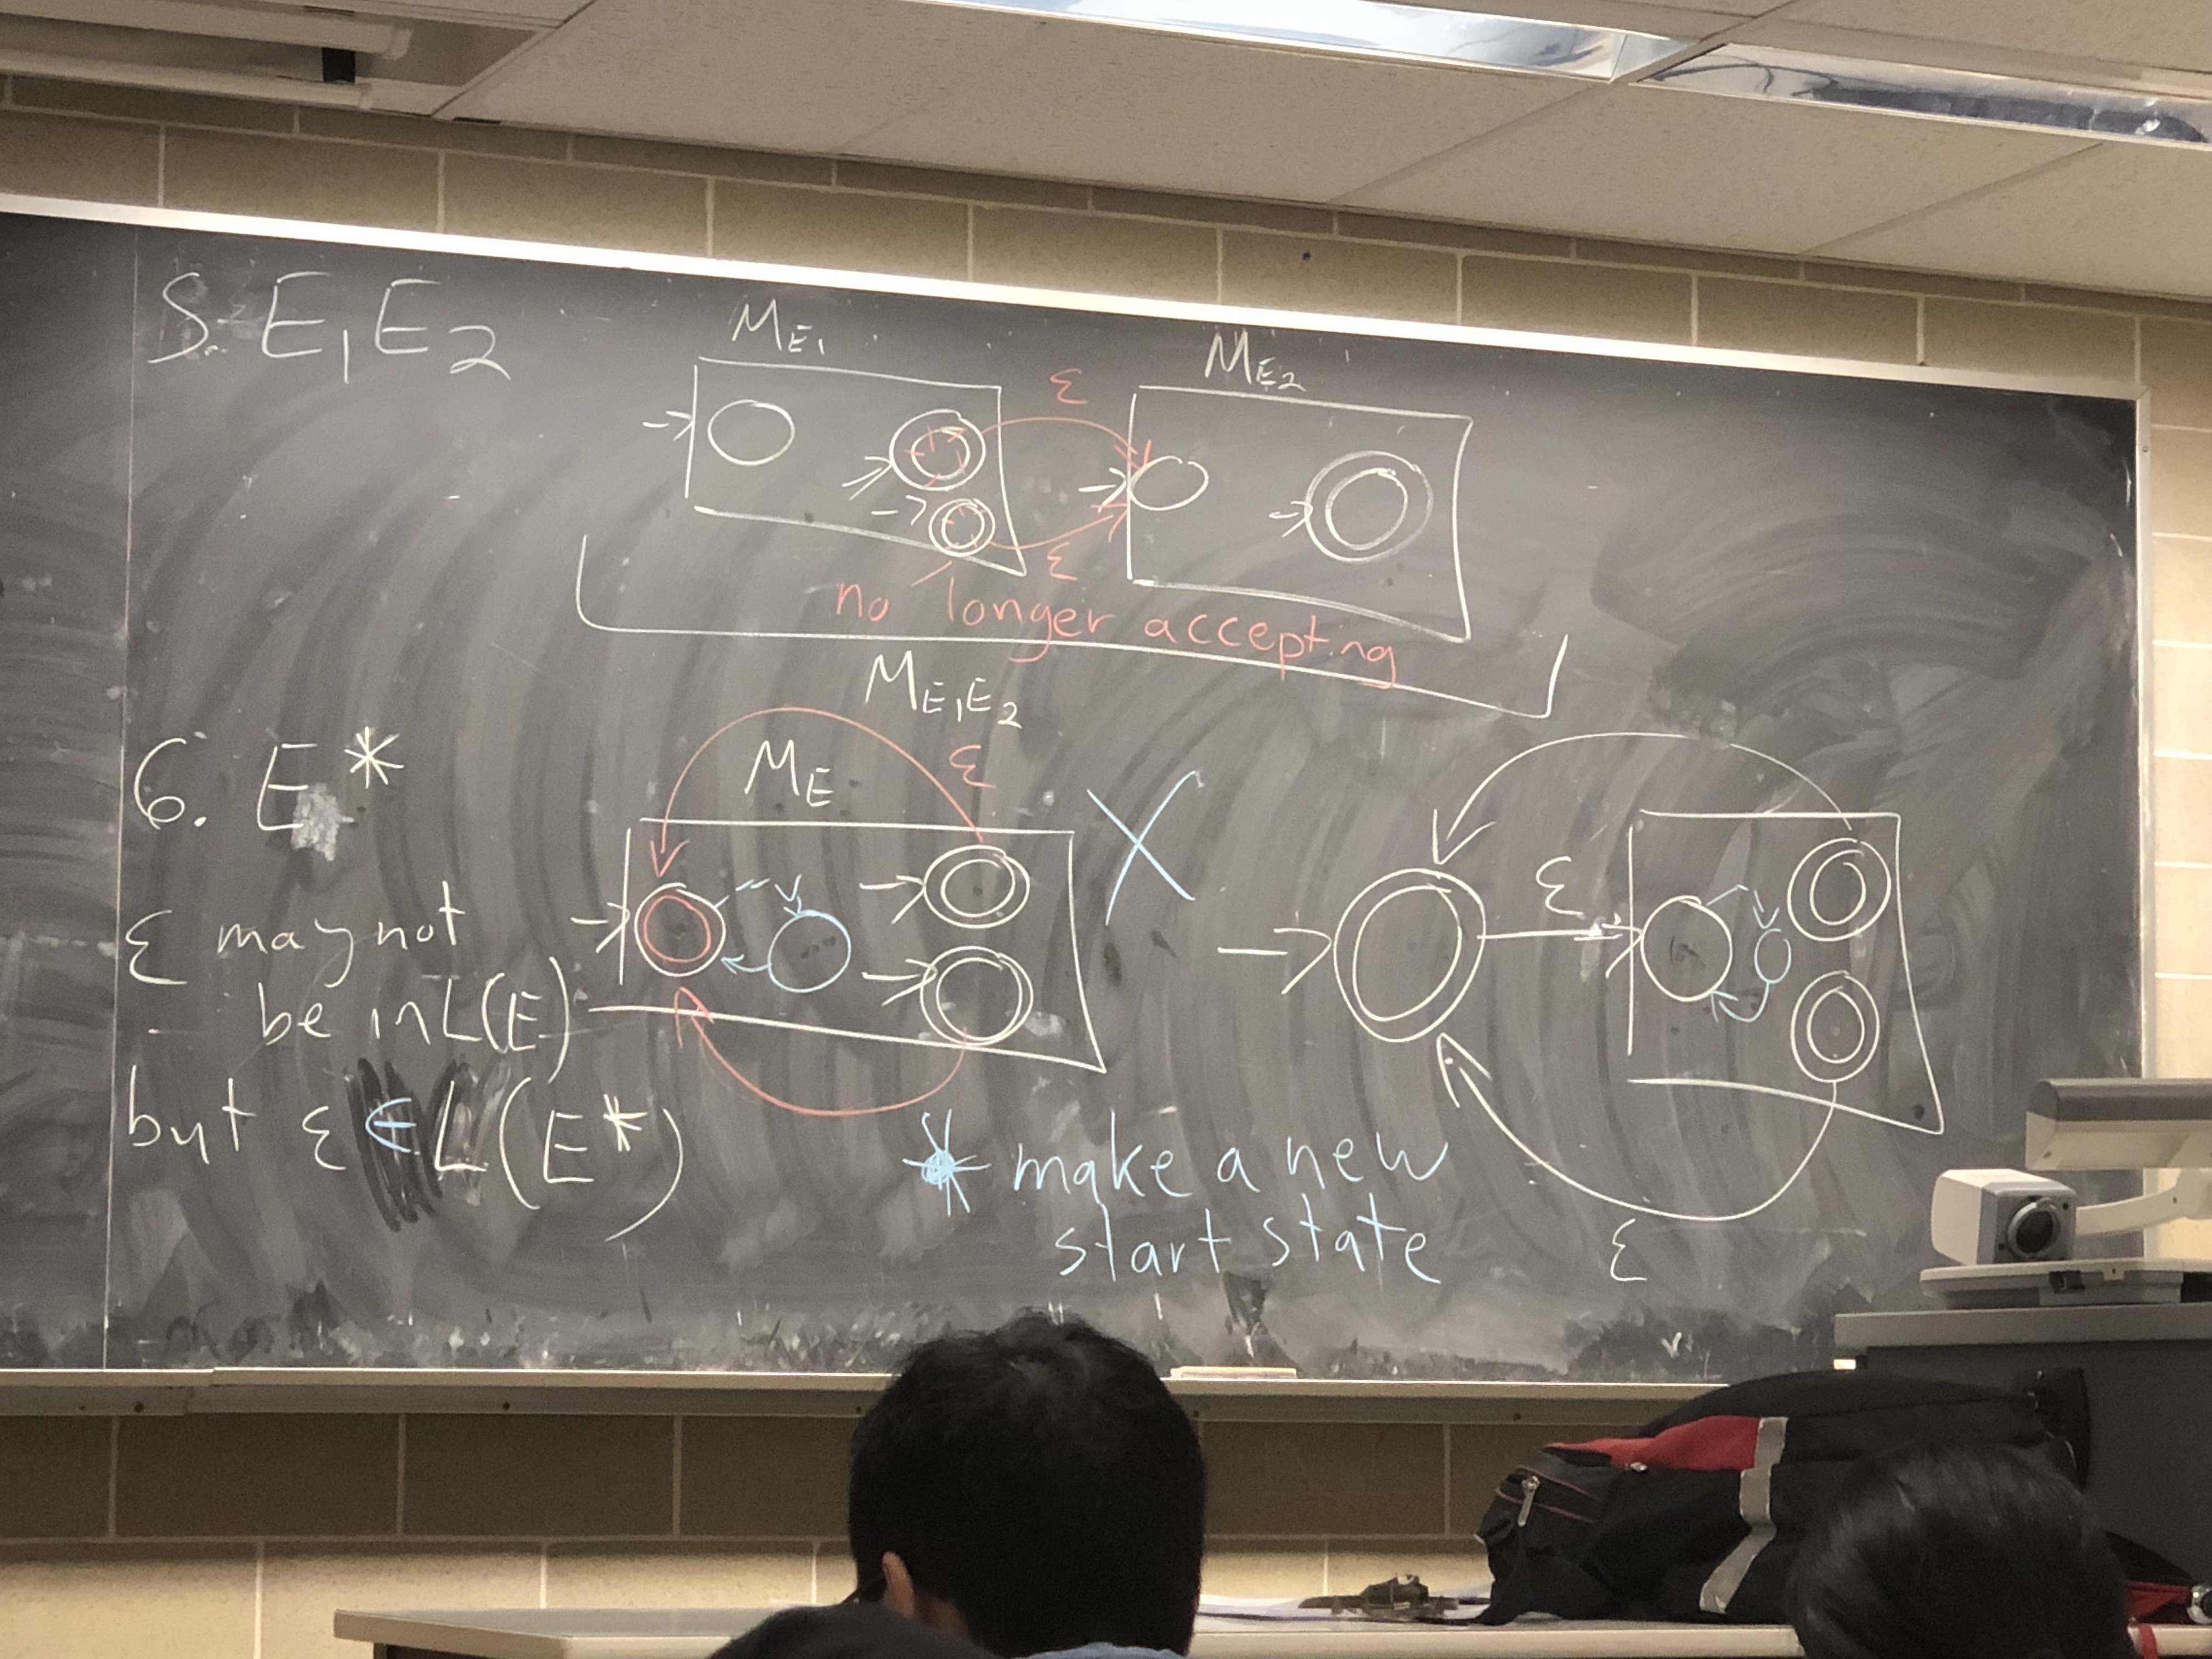 5. E₁E₂
M_E₁
M_E₂
ε
ε
no longer accepting
M_E₁E₂
6. E*
M_E
ε
X
ε
ε may not
be in L(E)
but ε ∈ L(E*)
* make a new
start state
ε